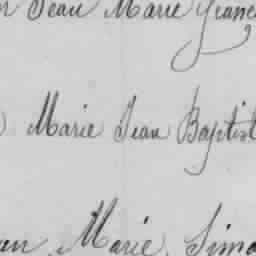 Jean Marie Franc
Marie Jean Baptist
Marie Simo